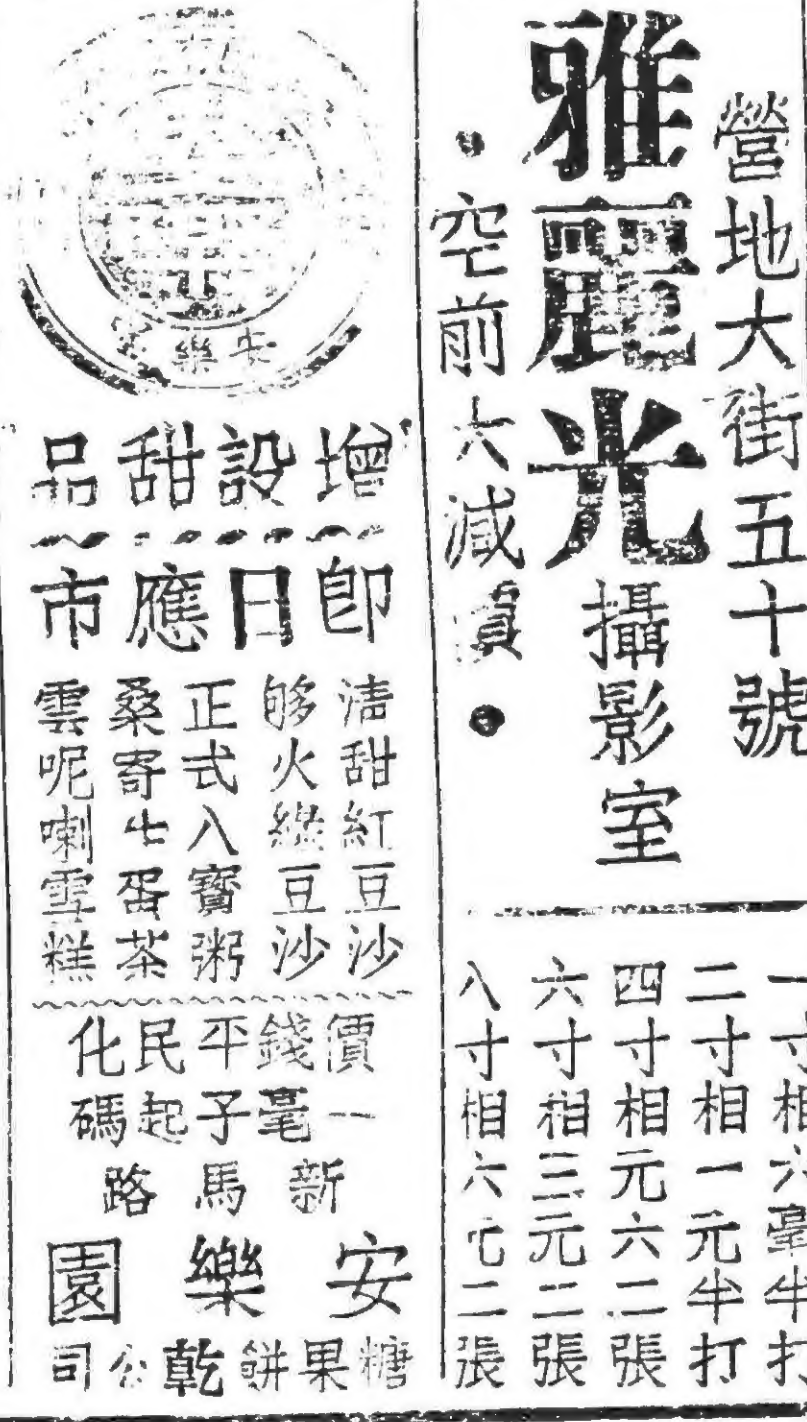 營地大街五十號
雅麗光攝影室
•空前大減價•
一寸相六毫半打
二寸相一元半打
四寸相元六二張
六寸相三元二張
八寸相六元二張
安樂園
增設甜品
即日應市
清甜紅豆沙
够火綠豆沙
正式八寶粥
桑寄生蛋茶
雲呢喇雪糕
價錢平民化
一毫子起碼
新馬路
安樂園
糖果餅乾公司